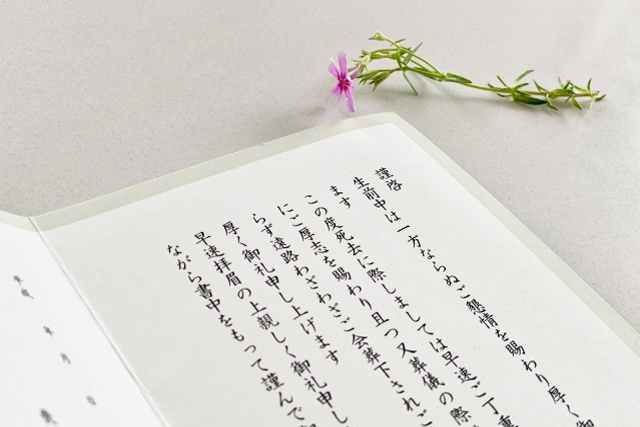 謹啓
生前中は一方ならぬご懇情を賜わり厚く御
ます
この度死去に際しましては早速ご丁重
にご厚志を賜わり且つ又葬儀の際
らず遠路わざわざご会葬下されご
厚く御礼申し上げます
早速拝眉の上親しく御礼申し
ながら書中をもって謹んで
年
月
日